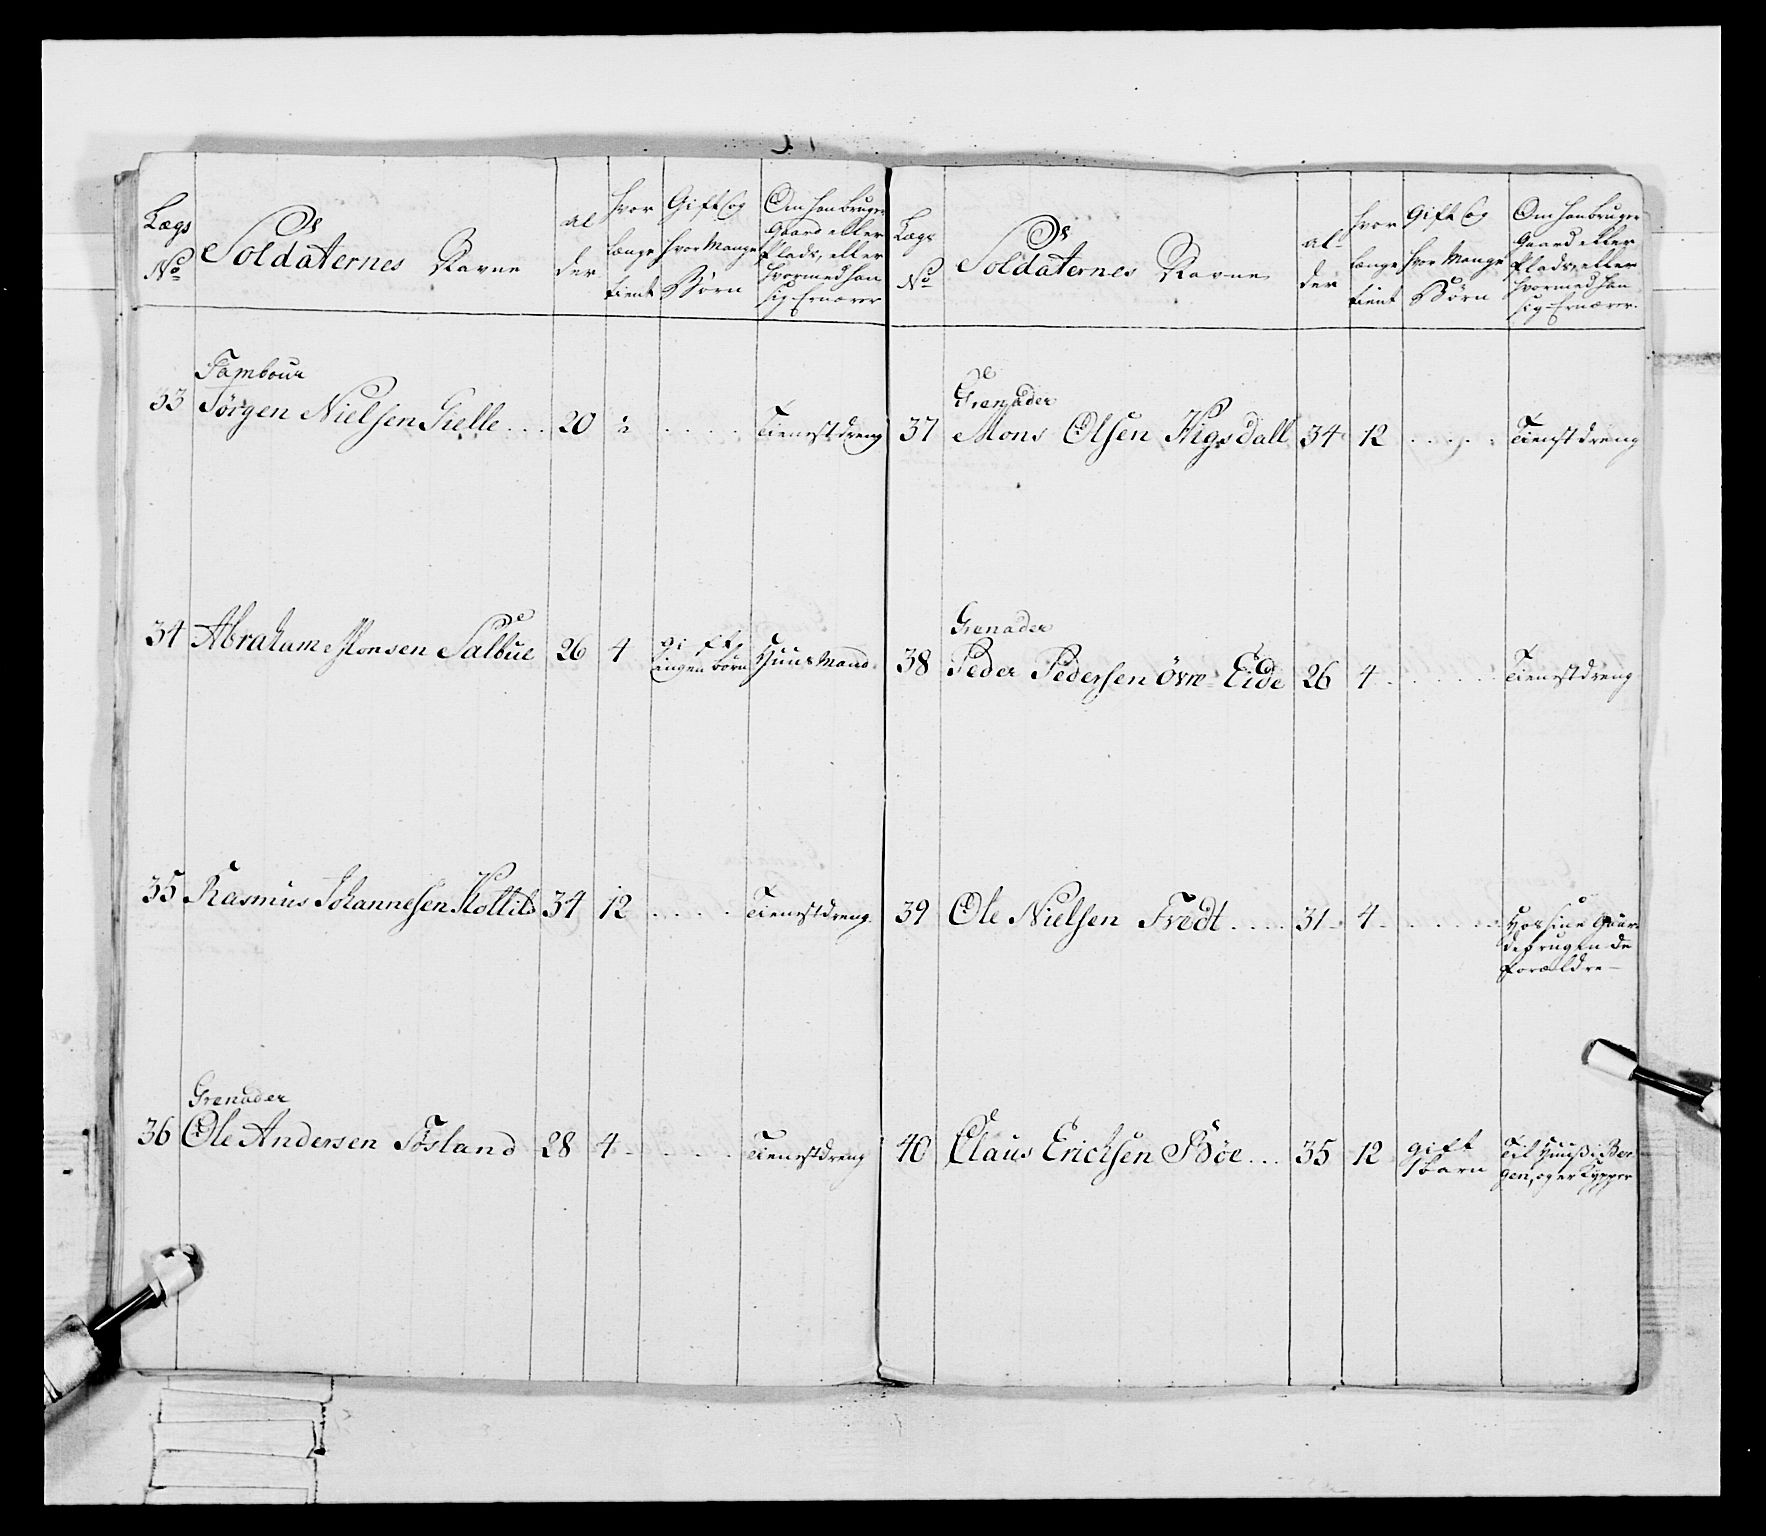 Lægs No
Soldaternes Navne
Alder
hvor længe tient
Gift og hvor Mange Børn
Om han bruger Gaard eller Plads, eller hvormed han sig Ernærer
Tambour
33 Jørgen Nielsen Gielle ... 20 2 .... Tienestdreng
34 Abraham Monsen Salbue 26 4 gift ingen børn Huusmand
35 Rasmus Johannesen Kollild 34 12 .... Tienestdreng
Grenader
36 Ole Andersen Fosland 28 4 .... Tienestdreng
Lægs No
Soldaternes Navne
Alder
hvor længe tient
Gift og hvor Mange Børn
Om han bruger Gaard eller Plads, eller hvormed han sig Ernærer
Grenader
37 Mons Olsen Higsdall 34 12 .... Tienstdreng
Grenader
38 Peder Pedersen Övre Eide 26 4 .... Tienestdreng
39 Ole Nielsen Tvedt .... 31 4 .... Hos sine Gaar-
debrugende
forældre
40 Claus Erichsen Bøe ... 35 12 gift 1 barn Til Huuß i Ber-
gen, og er Kypper